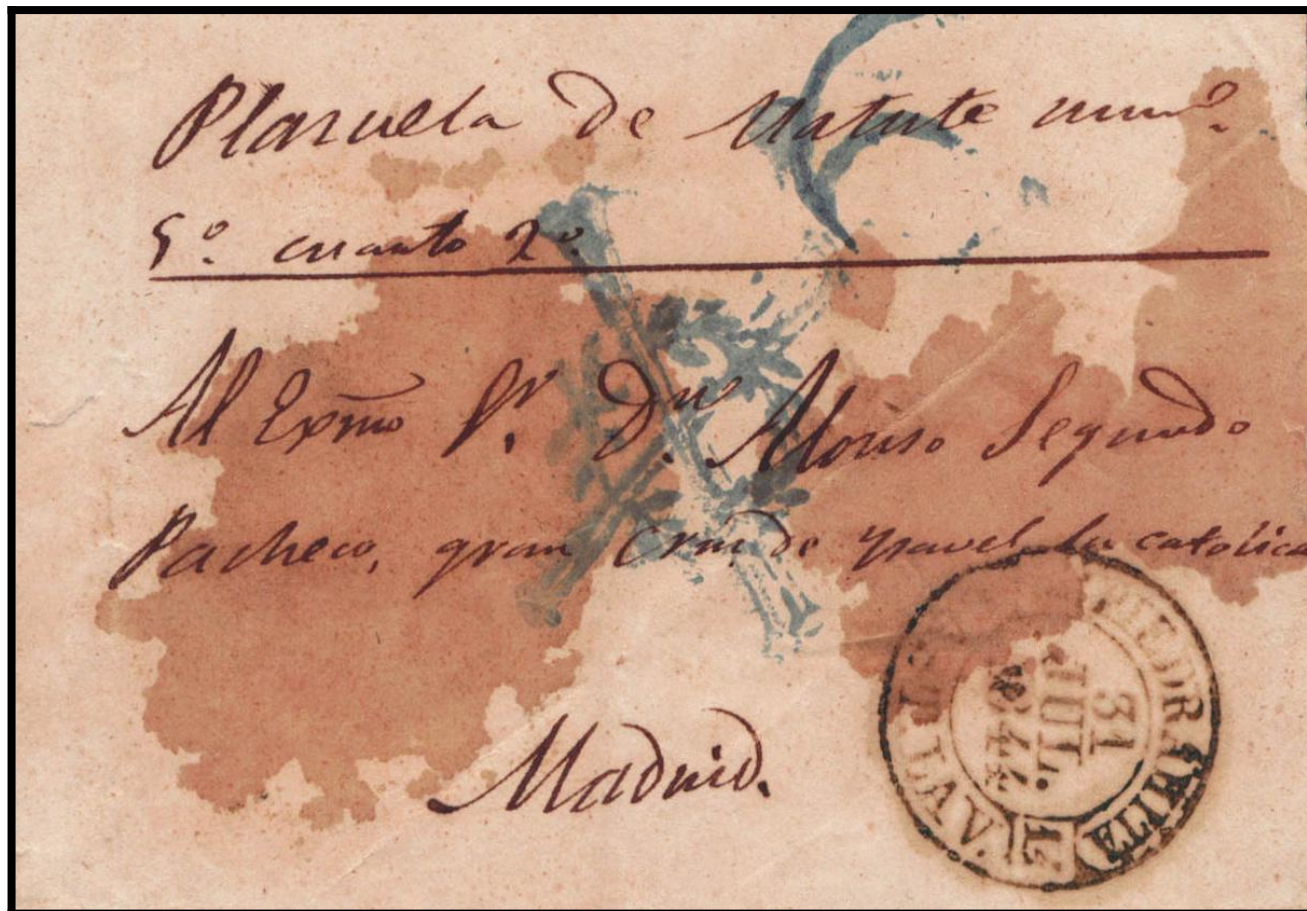 Plazuela de Matute num.º
5º cuarto 2º
Al Exmo Sr. Dn. Alonso Segundo
Pacheco, gran Cruz de Ysavel la catolica
Madrid.
PIEDRAHITA
31
JUL.
1844
LAV.
17